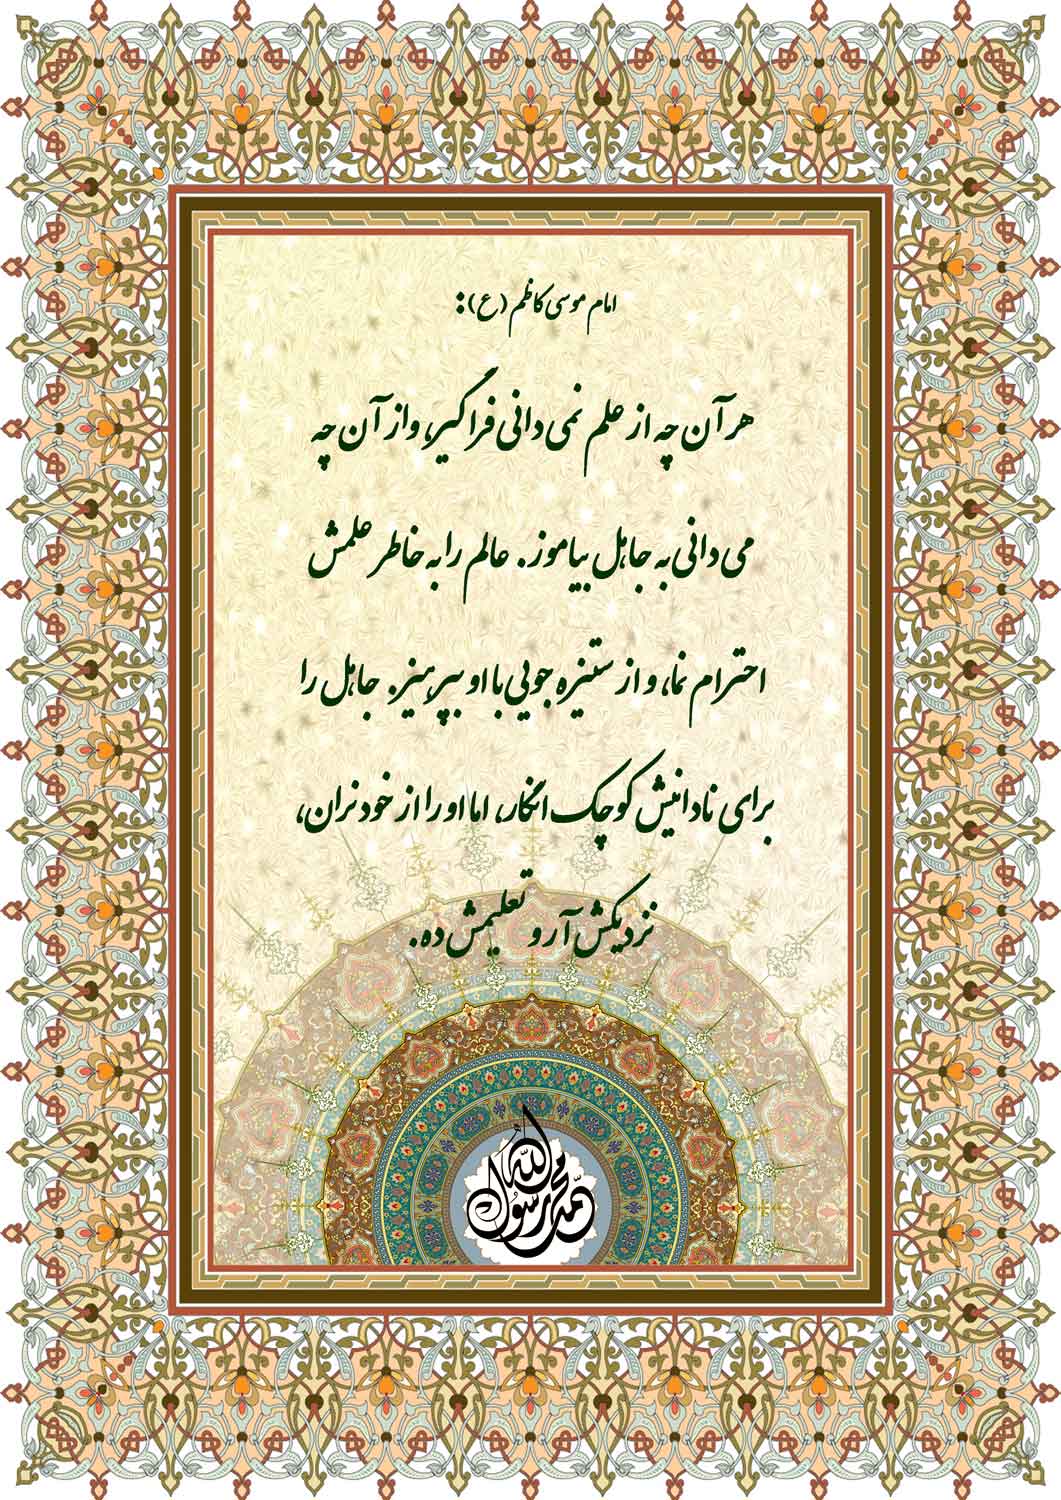 امام موسی کاظم (ع):
هر آن چه از علم نمی دانی فراگیر، و از آن چه
می دانی به جاهل بیاموز. عالم را به خاطر علمش
احترام نما، و از ستیزه جویی با او بپرهیز. جاهل را
برای نادانیش کوچک انگار، اما او را از خود نران،
نزدیکش آر و تعلیمش ده.
محمد رسول الله